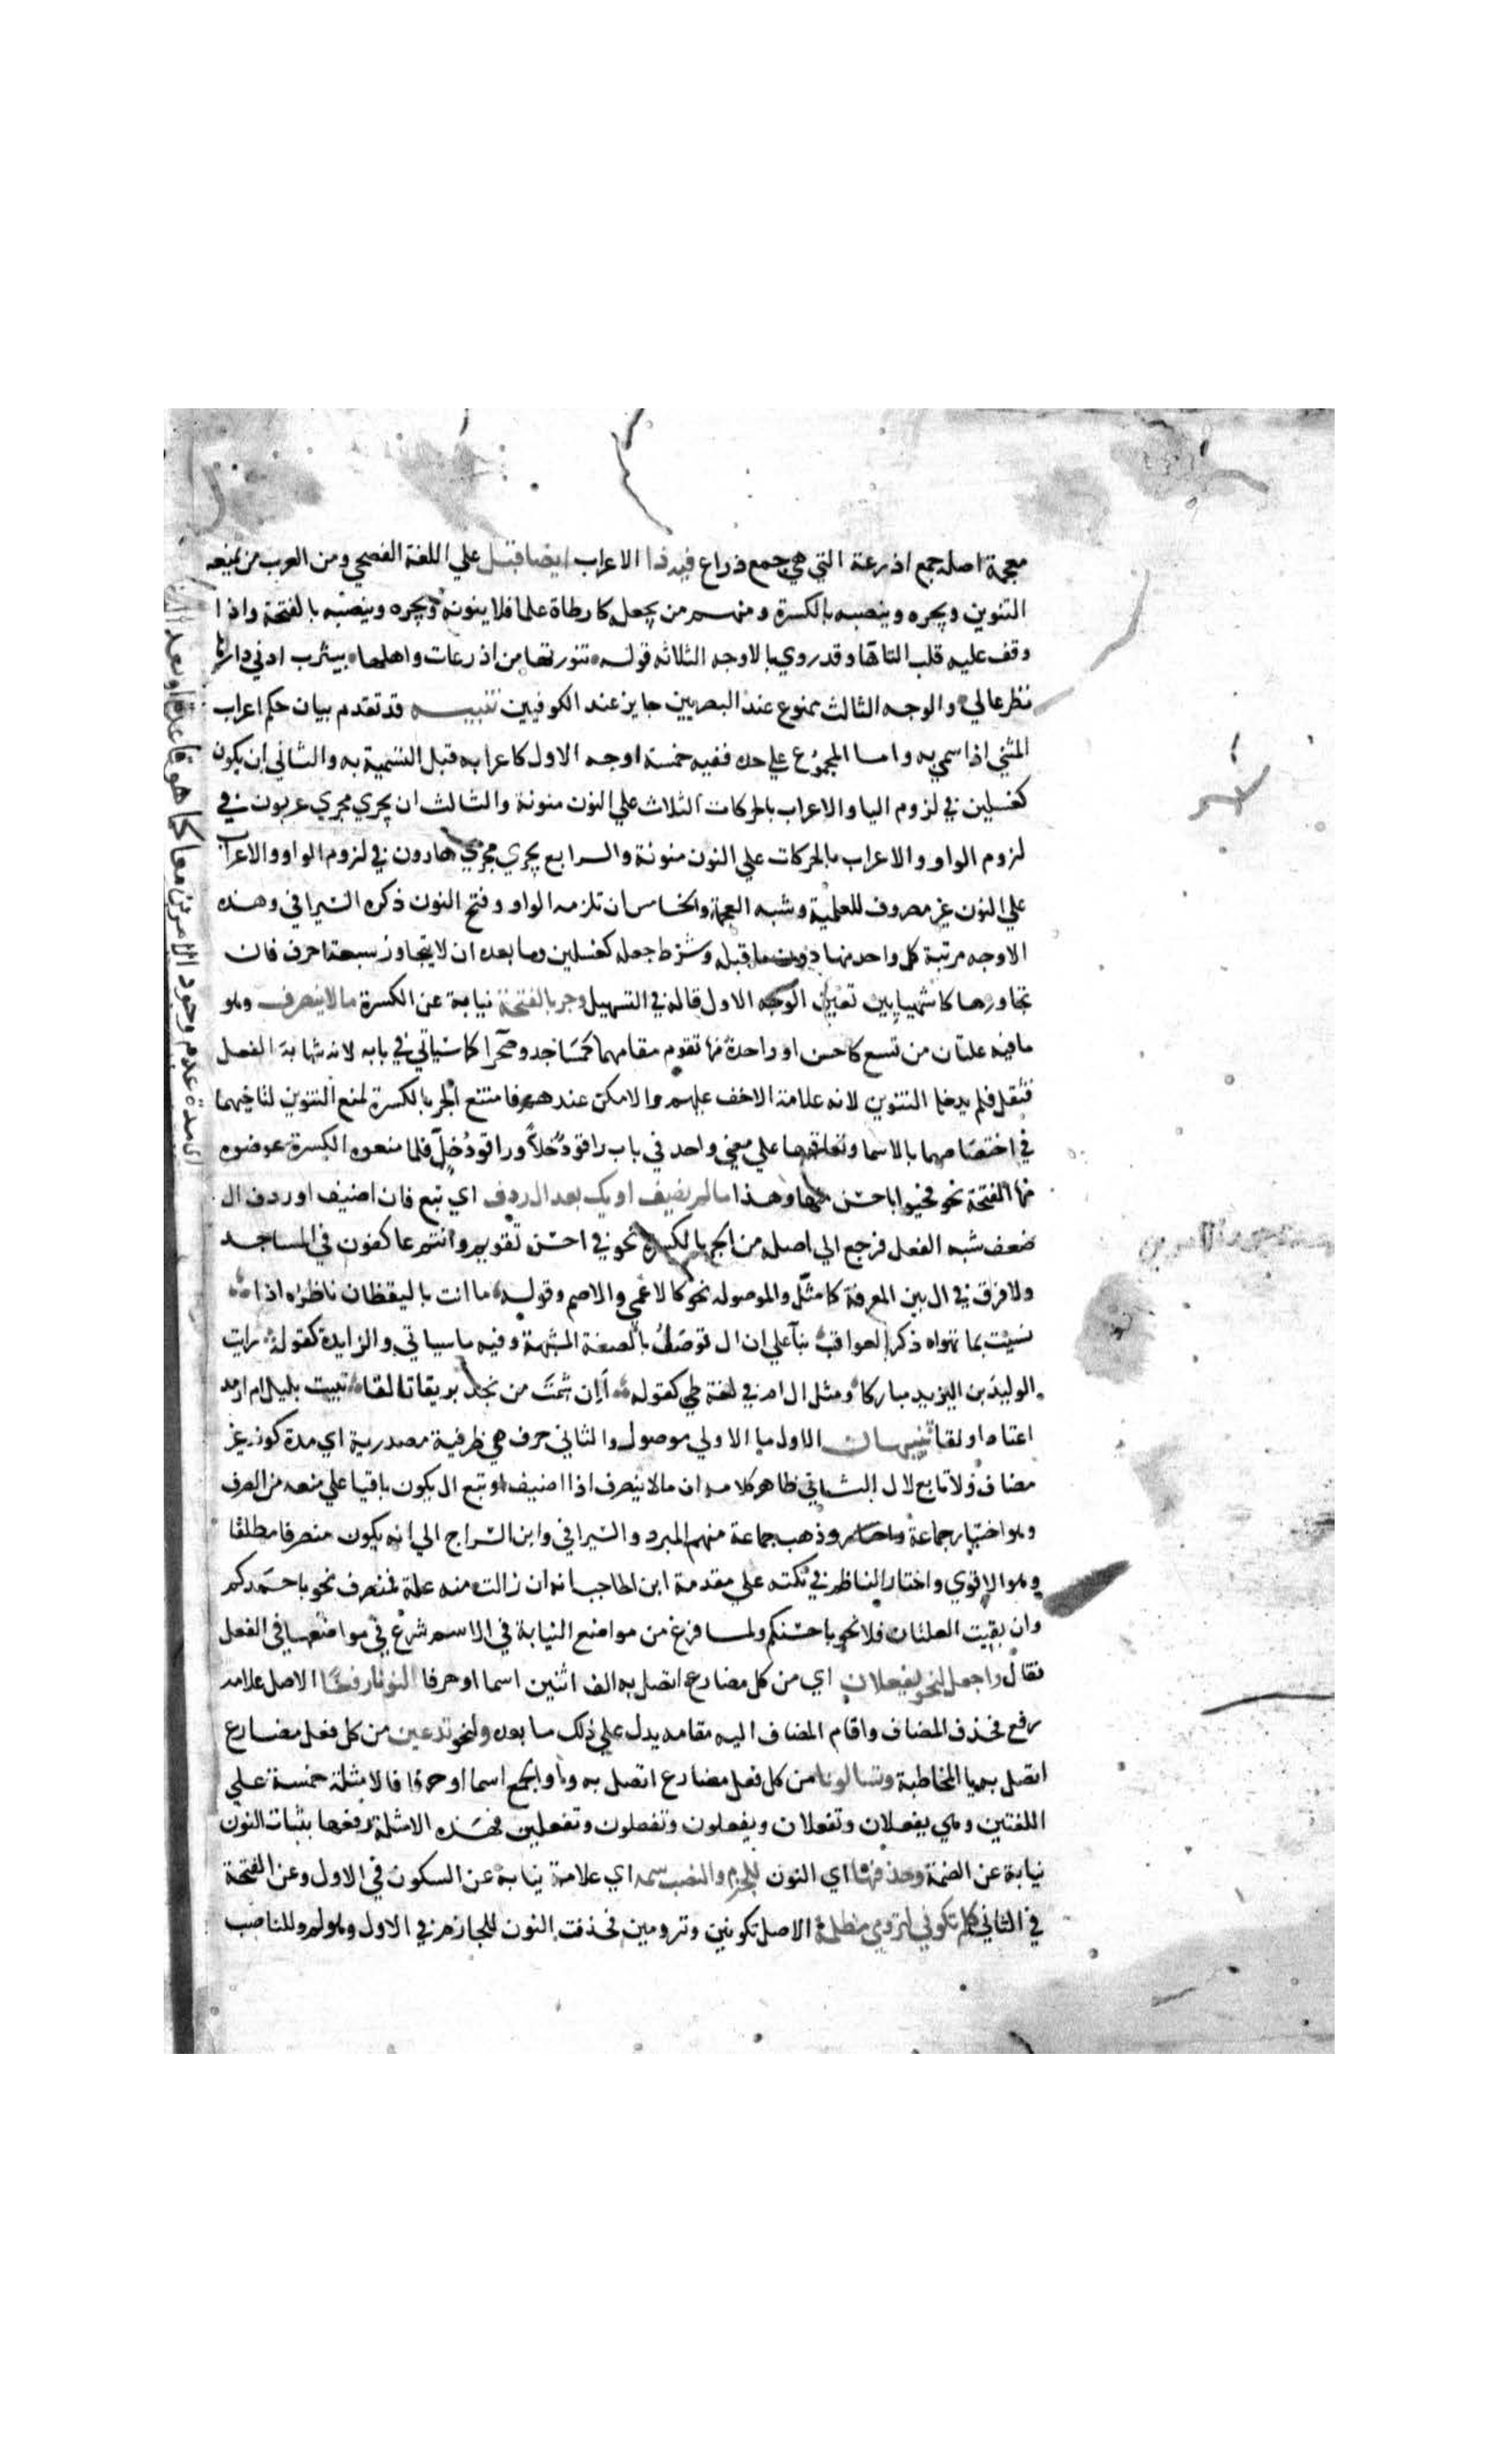 معجمة اصله جمع اذرعة التي هي جمع ذراع فيه ذا الاعراب ايضا قبل علي اللغة الفصحي ومن العرب من يمنعه
التنوين ويجره وينصبه بالكسرة ومنهم من يجعل كارطاة علما فلا ينونه ويجره وينصبه بالفتحة واذا
وقف عليه قلب التا ها وقد روي بالاوجه الثلاثه قوله تنورتها من اذرعات واهلها بيثرب ادني دارها
نظر عالي والوجه الثالث ممنوع عند البصريين جايز عند الكوفيين تنبيه قد تقدم بيان حكم اعراب
المثني اذا سمي به واما المجموع علي حده ففيه خمسة اوجه الاول كاعرابه قبل التسمية به والثاني ان يكون
كغسلين في لزوم اليا والاعراب بالحركات الثلاث علي النون منونة والثالث ان يجري مجري عربون في
لزوم الواو والاعراب بالحركات علي النون منونة والرابع يجري مجري هارون في لزوم الواو والاعراب
علي النون غير مصروف للعلمية وشبه العجمة والخامس ان تلزمه الواو وفتح النون ذكره السيرافي وهذه
الاوجه مرتبة كل واحد منها دون ما قبله وشرط جعله كغسلين وما بعده ان لا يتجاوز سبعة احرف فان
تجاوزها كاشهيبابين تعين الوجه الاول قاله في التسهيل وجر بالفتحة نيابة عن الكسرة مالا ينصرف وهو
ما فيه علتان من تسع كاحسن او واحدة منها تقوم مقامهما كمساجد وصحرا كما سياتي في بابه لانه شابه الفعل
فثقل فلم يدخله التنوين لانه علامة الاخف عليهم والامكن عندهم فامتنع الجر بالكسرة لمنع التنوين لتاخيهما
في اختصاصهما بالاسما وتعاقبهما علي معني واحد في باب راقود خلاً وراقود خلٍ فلما منعوه الكسرة عوضوه
منها الفتحة نحو فحيوا باحسن منها وهذا مالم يضف او يك بعد ال ردف اي تبع فان اضيف او ردف ال
ضعف شبه الفعل فرجع الي اصله من الجر بالكسرة نحو في احسن تقويم وانتم عاكفون في المساجد
ولا فرق في ال بين المعرفة كما مثل والموصوله نحو كالاعمي والاصم وقوله ما انت باليقظان ناظره اذا
نسيت بما تهواه ذكر العواقب بنآ علي ان ال توصل بالصفة المشبهة وفيه ما سياتي والزايدة كقوله رايت
الوليد بن اليزيد مباركا ومثل ال ام في لغة طي كقوله اَاِن شمت من نجد بريقا تالقا تبيت بليل ام ارمد
اعتاد اولقا تنبيهان الاول ما الاولي موصول والثاني حرف هي ظرفية مصدرية اي مدة كونه غير
مضاف ولا تابع لال الثاني ظاهر كلامه ان مالا ينصرف اذا اضيف او تبع ال يكون باقيا علي منعه من الصرف
وهو اختيار جماعة وذهب جماعة منهم المبرد والسيرافي وابن السراج الي انه يكون منصرفا مطلقا
وهو الاقوي واختار الناظم في نكته علي مقدمة ابن الحاجب انه ان زالت منه علة فمنصرف نحو باحمدكم
وان بقيت العلتان فلا نحو باحسنكم ولما فرغ من مواضع النيابة في الاسم شرع في مواضعها في الفعل
فقال واجعل لنحو يفعلان اي من كل مضارع اتصل به الف اثنين اسما او حرفا النونا رفعًا الاصل علامة
رفع فحذف المضاف واقام المضاف اليه مقامه يدل علي ذلك ما بعده ولنحو تدعين من كل فعل مضارع
اتصل به يا المخاطبة وتسالونا من كل فعل مضارع اتصل به واو الجمع اسما او حرفا فالامثلة خمسة علي
اللغتين وهي يفعلان وتفعلان ويفعلون وتفعلون وتفعلين فهذه الامثلة رفعها بثبات النون
نيابة عن الضمة وحذفها اي النون للجزم والنصب سمه اي علامة نيابة عن السكون في الاول وعن الفتحة
في الثاني كلم تكوني لترومي مظلمة الاصل تكونين وترومين فحذفت النون للجازم في الاول وهو لم وللناصب
اي مدة عدم وجود الامرين معا كما هو